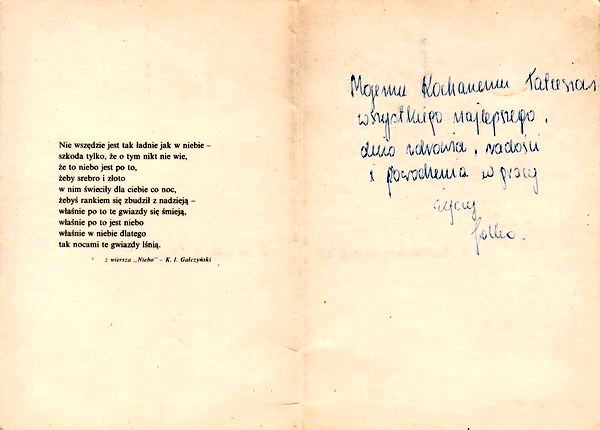 Nie wszędzie jest tak ładnie jak w niebie –
szkoda tylko, że o tym nikt nie wie,
że to niebo jest po to,
żeby srebro i złoto
w nim świeciły dla ciebie co noc,
żebyś rankiem się zbudził z nadzieją –
właśnie po to te gwiazdy się śmieją,
właśnie po to jest niebo
właśnie w niebie dlatego
tak nocami te gwiazdy lśnią.
z wiersza „Niebo” – K. I. Gałczyński
Mojemu Kochanemu
wszystkiego najlepszego,
dużo zdrowia, radości
i powodzenia w pracy
życzy